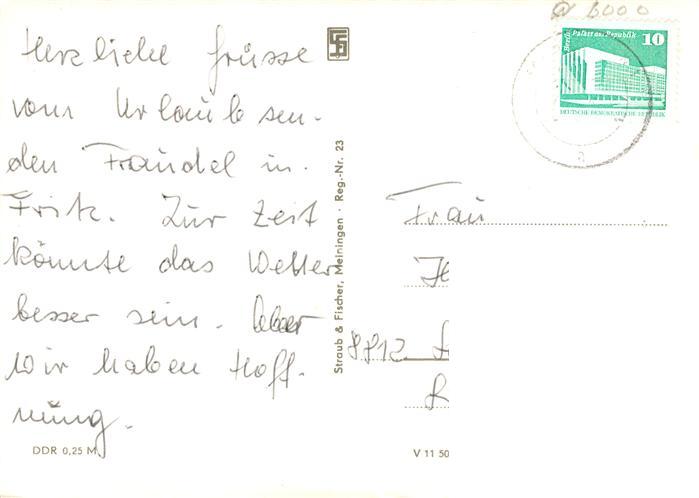 Herzliche Grüsse
vom Urlaub sen-
den Traudel u.
Fritz. Zur Zeit
könnte das Wetter
besser sein. Aber
wir haben Hoff-
nung.
DDR 0,25 M
Straub & Fischer, Meiningen · Reg.-Nr. 23
6000
Berlin Palast der Republik 10
DEUTSCHE DEMOKRATISCHE REPUBLIK
Frau
8812
V 11 50